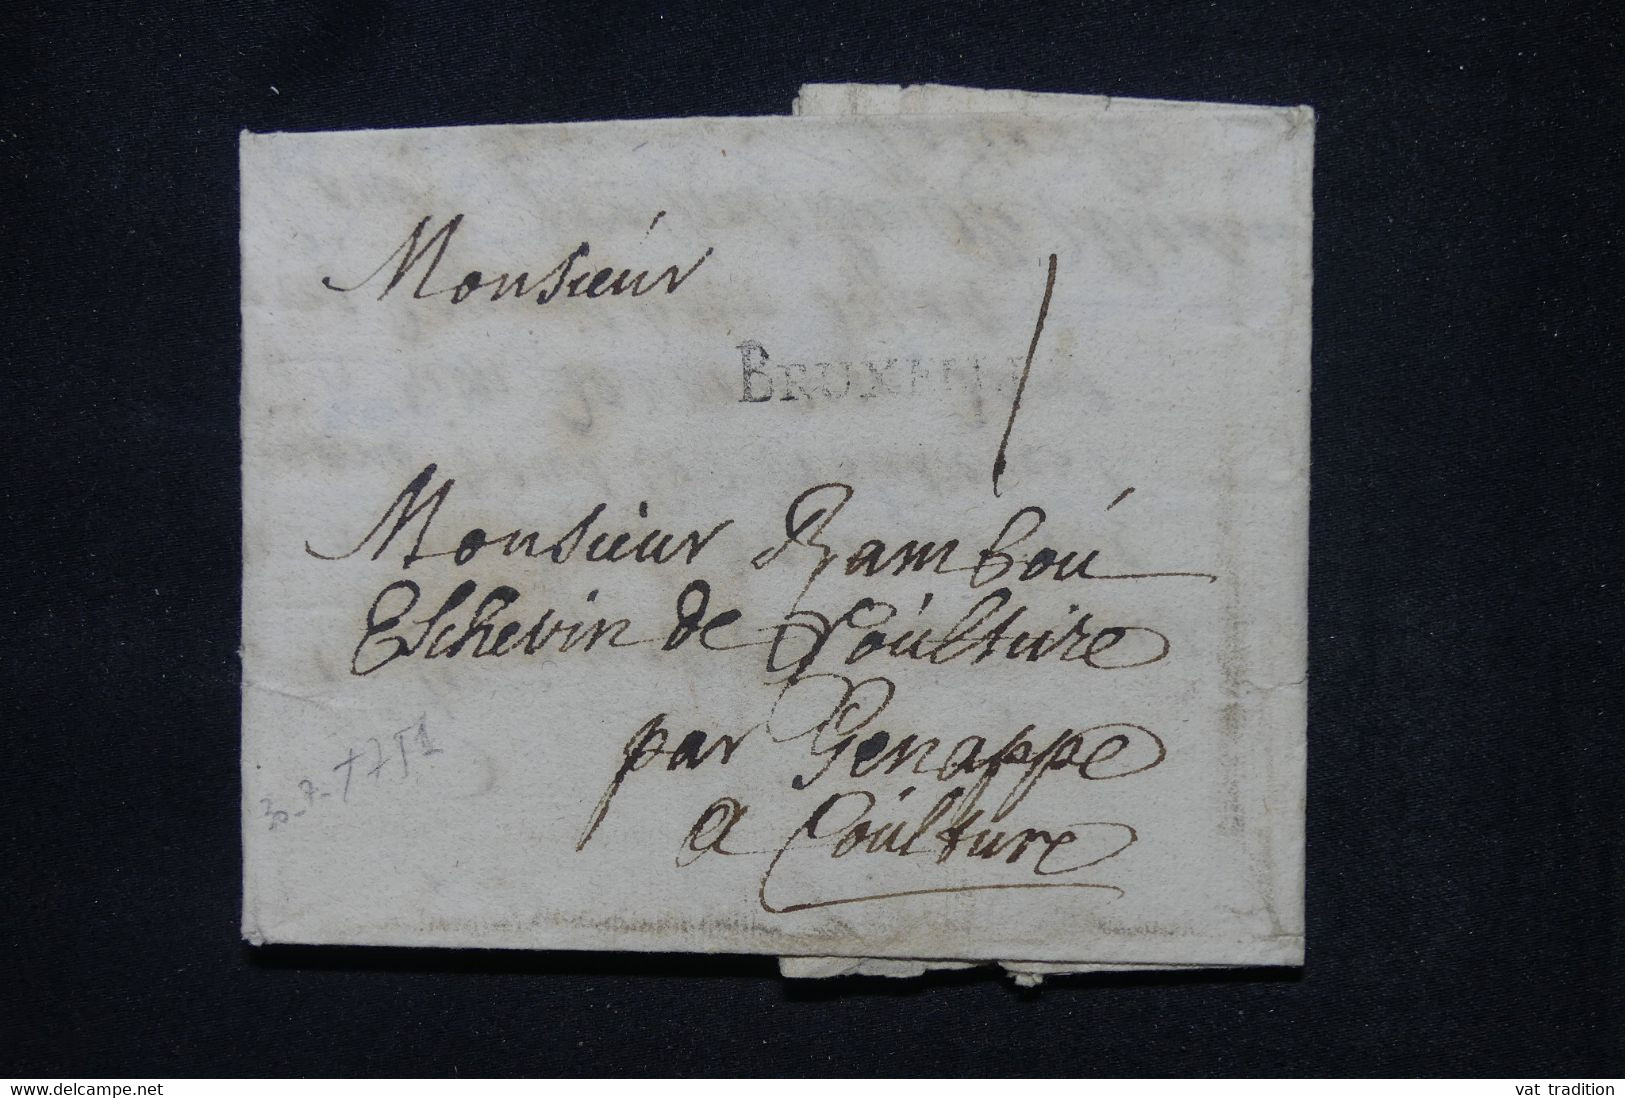 Monsieúr
1
BRUXELLE
Monsieur Ramboú
Eschevin de Coúlture
par Genappe
a Coúlture
30-7-1751
www.delcampe.net
vat_tradition